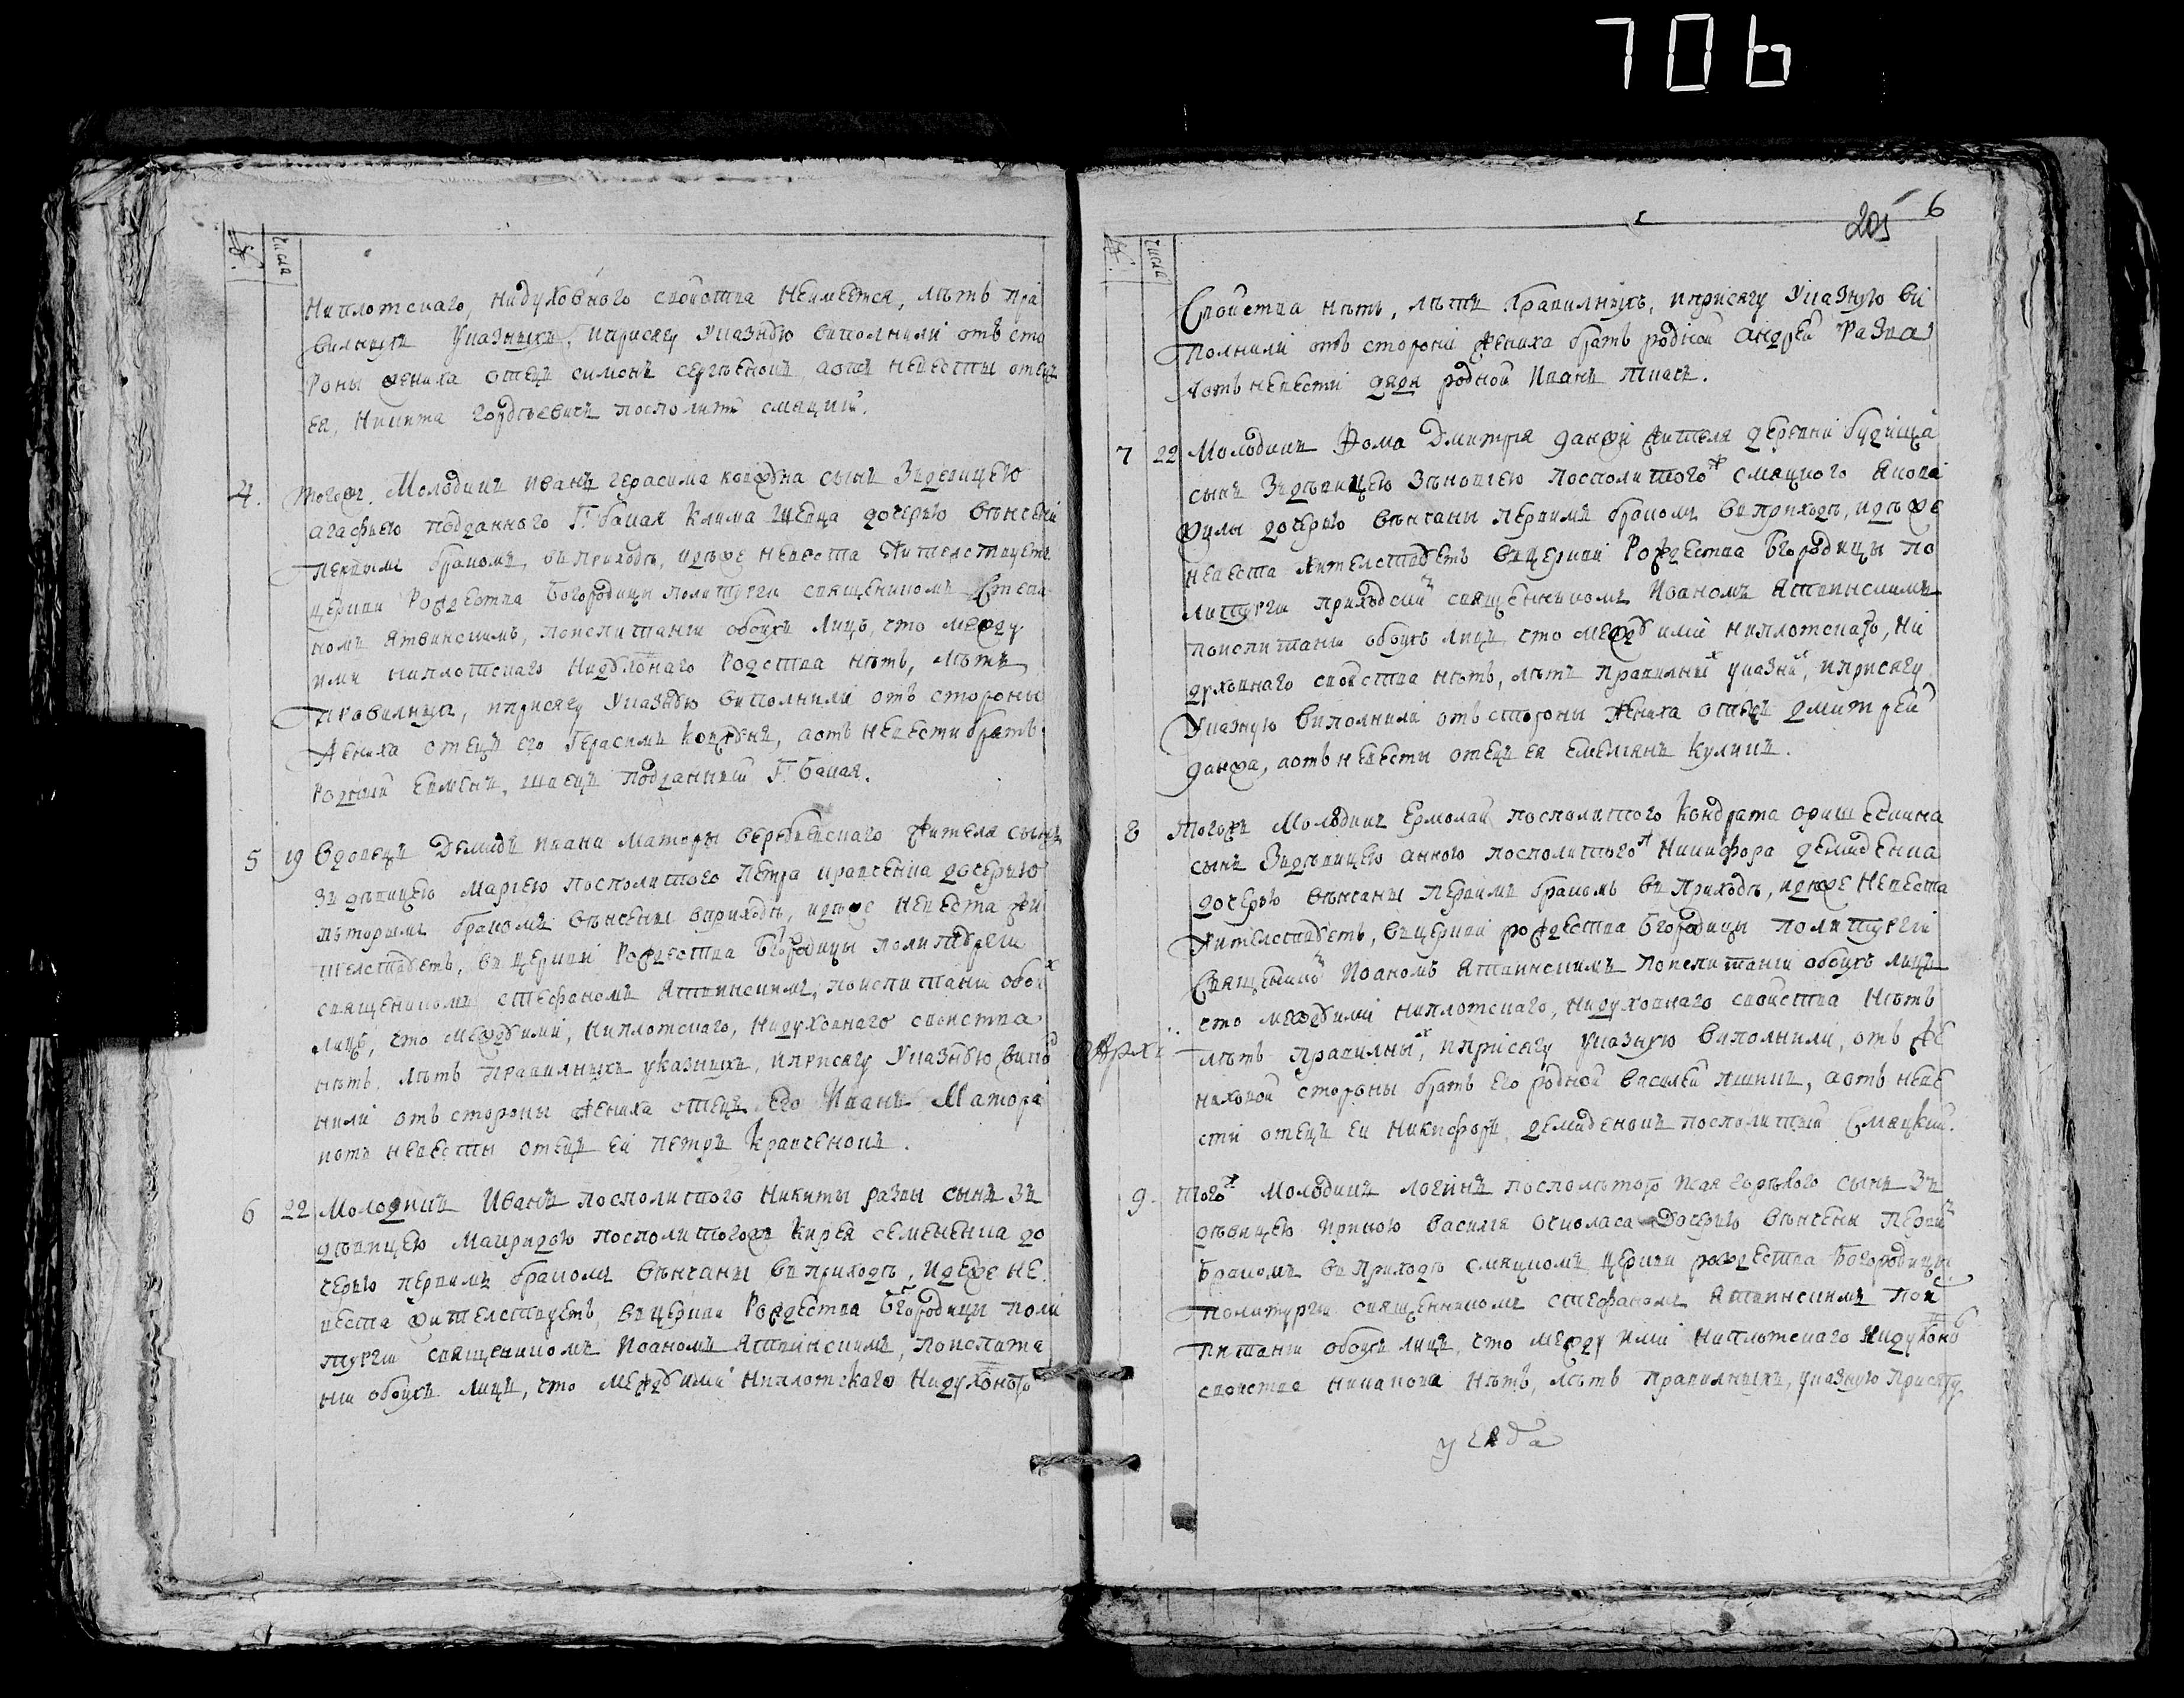 706
№.
числа
Ни плотскаго, ни духовного свойства неимеется, лѣтъ пра
вилнихъ указныхъ, и присягу указную виполнили отъ сто
роны жениха отецъ симонъ а отъ невесты отецъ
ея, Никита Гордѣевичъ посполитій смяцкий.
4. Тогож. Молодикъ иванъ герасима сынъ зъ девицею
агафиею подданного Г: бакая клима шевца дочерью вѣнчени
первымъ бракомъ, въ приходѣ, идѣже невеста жителствуетъ
церкви Рождества Богородицы по литургіи священикомъ Стефа
номъ Ятвинскимъ, по испитаніи обоихъ лицъ, что между
ими ни плотскаго ни духовнаго родства нѣтъ, лѣтъ
правилнихъ, и присягу указную виполнили отъ стороны
жениха отецъ его Герасимъ а отъ невести братъ
родный швецъ подданный Г: Бакая.
5 19 Вдовецъ Демидъ ивана Маторы жителя сынъ
зъ дѣвицею Мариею посполитого Петра кравченка дочерью
вторымъ бракомъ вѣнчены въ приходѣ, идѣже невеста жи
телствуетъ, въ церкви Рождества Бгородицы по литургіи
священикомъ стефаномъ Ятвинскимъ, по испитаніи обоихъ
лицъ, что между ими, ни плотскаго, ни духовнаго свойства
нѣтъ, лѣтъ правилнихъ указнихъ, и присягу указную випол
нили отъ стороны жениха отецъ его Иванъ Матора
и отъ невесты отецъ ей петръ Кравченокъ.
6 22 Молодикъ Иванъ посполитого Никиты развы сынъ зъ
дѣвицею Маvридою посполитогожъ Кирея семененка до
черью первимъ бракомъ вѣнчаны въ приходѣ, идѣже не
веста жителствуетъ, въ церкви Рождества Бгородицы по ли
тургіи священникомъ Иоаномъ Ятвинскимъ, по испита
ніи обоихъ лицъ, что между ими ни плотскаго ни духовного
№.
числа
205 6
Свойства нѣтъ, лѣтъ правилнихъ, и присягу указную ви
полнили отъ стороні жениха братъ родной андрей Разва
а отъ невести дядя родной Иванъ ткачъ.
7 22 Молодикъ Фома Дмитрия данжи жителя деревни будища
сынъ зъ дѣвицею Зѣновіею посполитогож смяцкого
дочерью вѣнчаны первимъ бракомъ въ приходѣ, идѣже
невеста жителствуетъ въ церкви Рождества Бгородицы по
литургіи приходскимъ священникомъ Иваномъ Ятвинскимъ
по испитаніи обоихъ лицъ, что между ими ни плотскаго, ни
духовнаго свойства нѣтъ, лѣтъ правилних указних, и присягу
указную виполнили отъ стороны жениха отецъ дмитрей
данжа, а отъ невести отецъ ея Емелианъ кулишъ.
8 тогожъ Молодикъ Ермолай посполитого Кондрата
сынъ зъ дѣвицею анною посполитого Никифора демиденка
дочерью вѣнчаны первимъ бракомъ въ приходѣ, идѣже невеста
жителствуетъ, въ церкви рождества Бгородицы по литургіи
священикомъ Иоаномъ Ятвинскимъ по испитаніи обоихъ лицъ
что между ими ни плотскаго, ни духовнаго свойства нѣтъ
лѣтъ правилних, и присягу указную виполнили, отъ же
ниховой стороны братъ его родной василий а отъ неве
сти отецъ ея Никифоръ демиденокъ посполитый Смяцкий.
9. тогож Молодикъ логинъ посполытого Исая горѣлого сынъ зъ
дѣвицею Ириною василя дочерью вѣнчени первим
бракомъ въ приходѣ смяцкомъ церкви рождества Богородицы
по литургіи священникомъ стефаномъ Ятвинскимъ по ис
питаніи обоихъ лицъ, что между ими ни плотскаго ни духовного
свойства никакова нѣтъ, лѣтъ правилнихъ, указную присягу
уезда